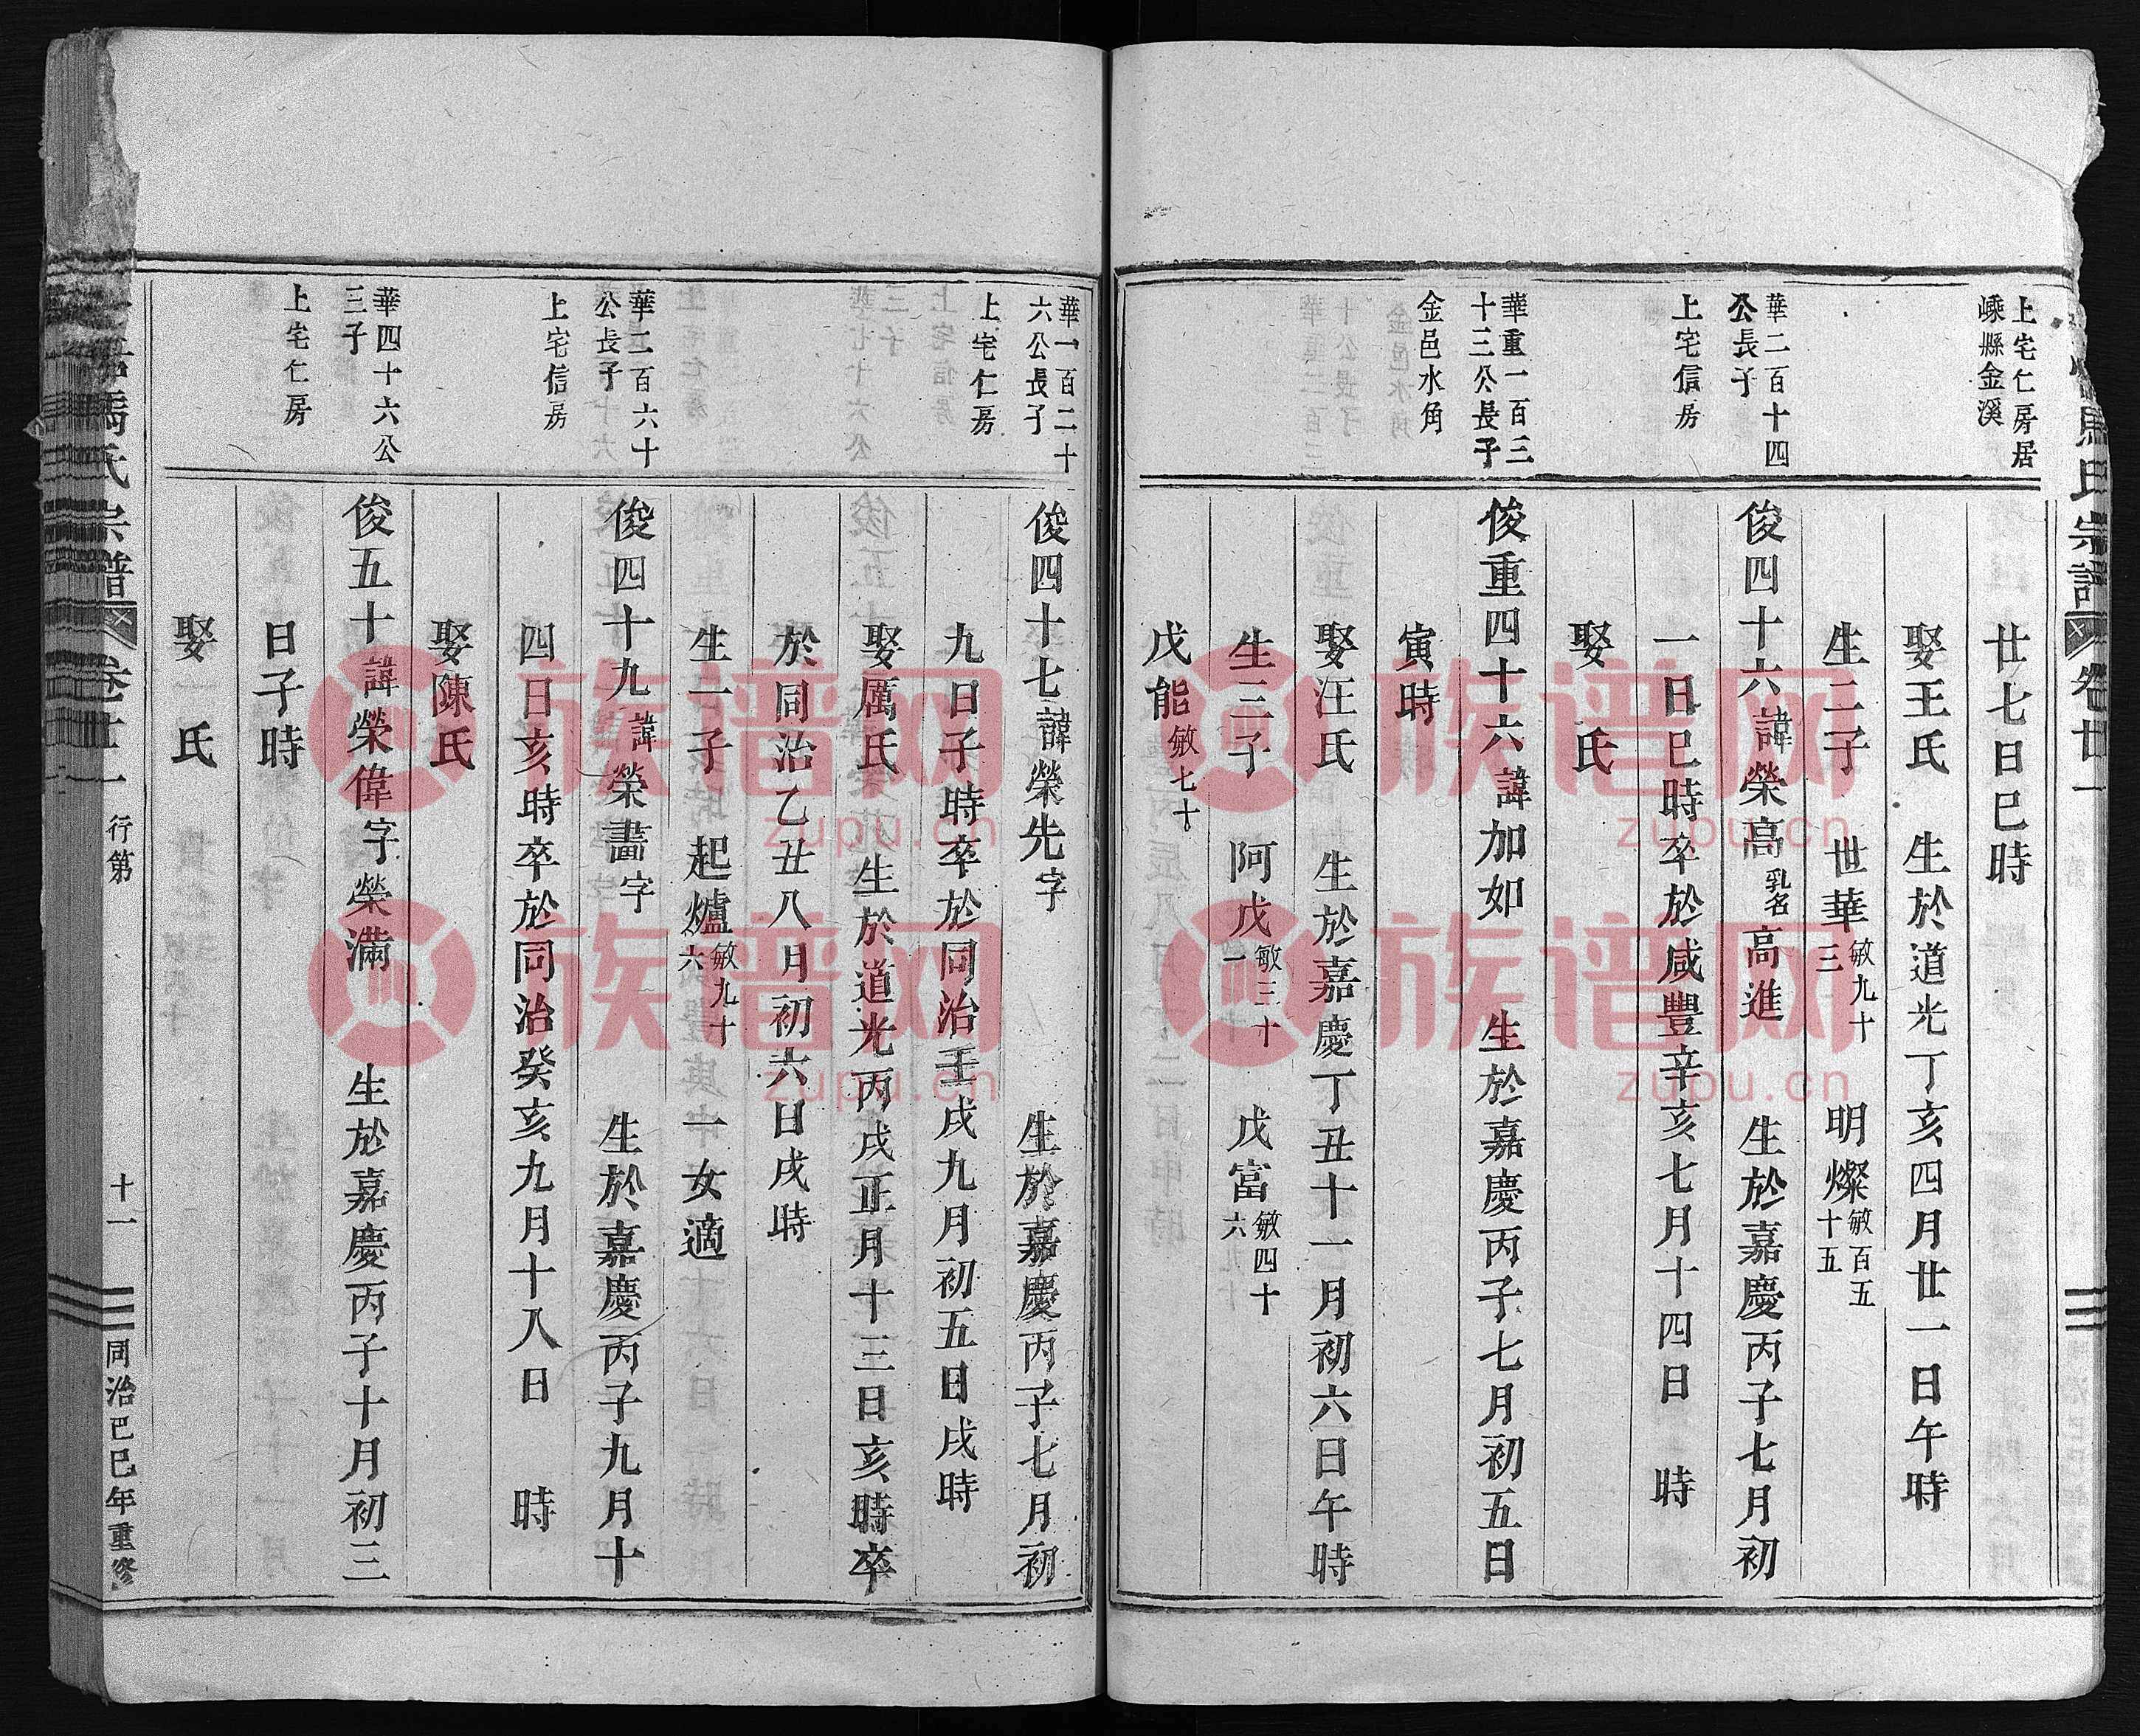 馬氏宗譜 卷廿一
上宅仁房居
嵊縣金溪
廿七日巳時
娶王氏 生於道光丁亥四月廿一日午時
生二子 世華敏九十三 明燦敏百五十五
華二百十四
公長子
上宅信房
俊四十六諱榮高乳名高進 生於嘉慶丙子七月初
一日巳時卒於咸豐辛亥七月十四日 時
娶 氏
華重一百三
十三公長子
金邑水角
俊重四十六諱加如 生於嘉慶丙子七月初五日
寅時
娶汪氏 生於嘉慶丁丑十一月初六日午時
生三子 阿戊敏三十一 戊富敏四十六
戊能敏七十
華一百二十
六公長子
上宅仁房
俊四十七諱榮先字 生於嘉慶丙子七月初
九日子時卒於同治壬戌九月初五日戌時
娶厲氏 生於道光丙戌正月十三日亥時卒
於同治乙丑八月初六日戌時
生一子 起爐敏九十六 一女適
華二百六十
公長子
上宅信房
俊四十九諱榮畵字 生於嘉慶丙子九月十
四日亥時卒於同治癸亥九月十八日 時
娶陳氏
華四十六公
三子
上宅仁房
俊五十諱榮偉字榮滿 生於嘉慶丙子十月初三
日子時
娶 氏
馬氏宗譜 卷廿一 行第 十一 同治巳巳年重修
族谱网
zupu.cn
族谱网
zupu.cn
族谱网
zupu.cn
族谱网
zupu.cn